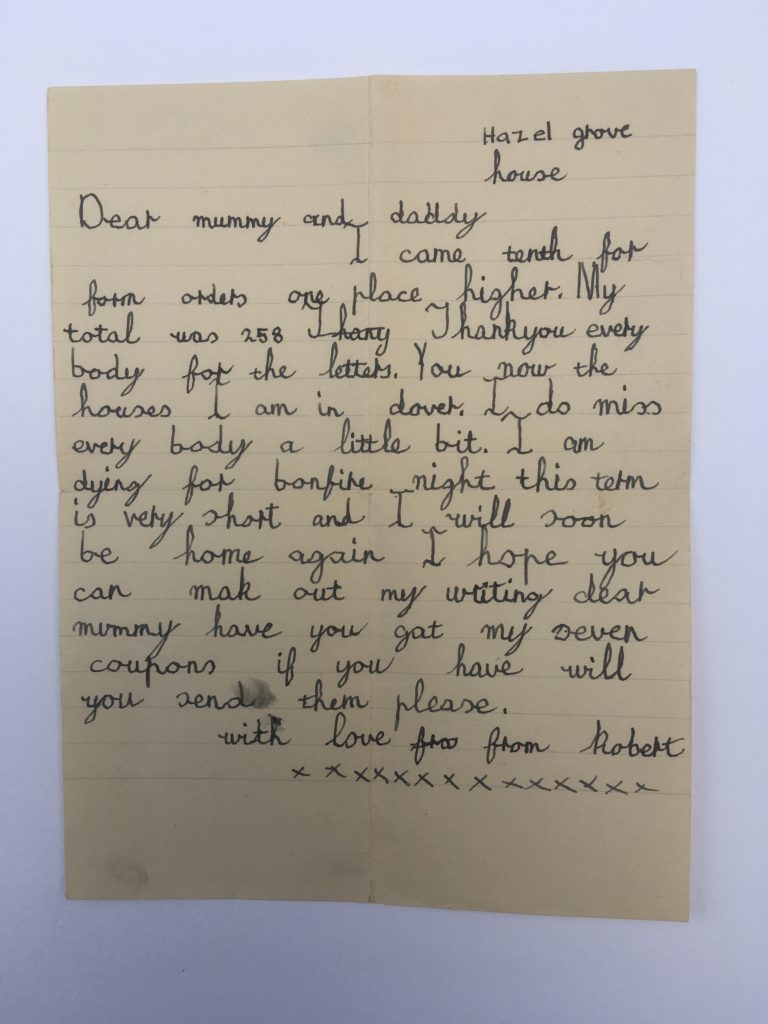 Hazel grove
house
Dear mummy and daddy
I came tenth for
form orders one place higher. My
total was 258 Thany Thankyou every
body for the letters. You now the
houses I am in dover. I do miss
every body a little bit. I am
dying for bonfire night this term
is very short and I will soon
be home again I hope you
can mak out my writing dear
mummy have you got my seven
coupons if you have will
you send them please.
with love fro from Robert
x x x x x x x x x x x x x x x